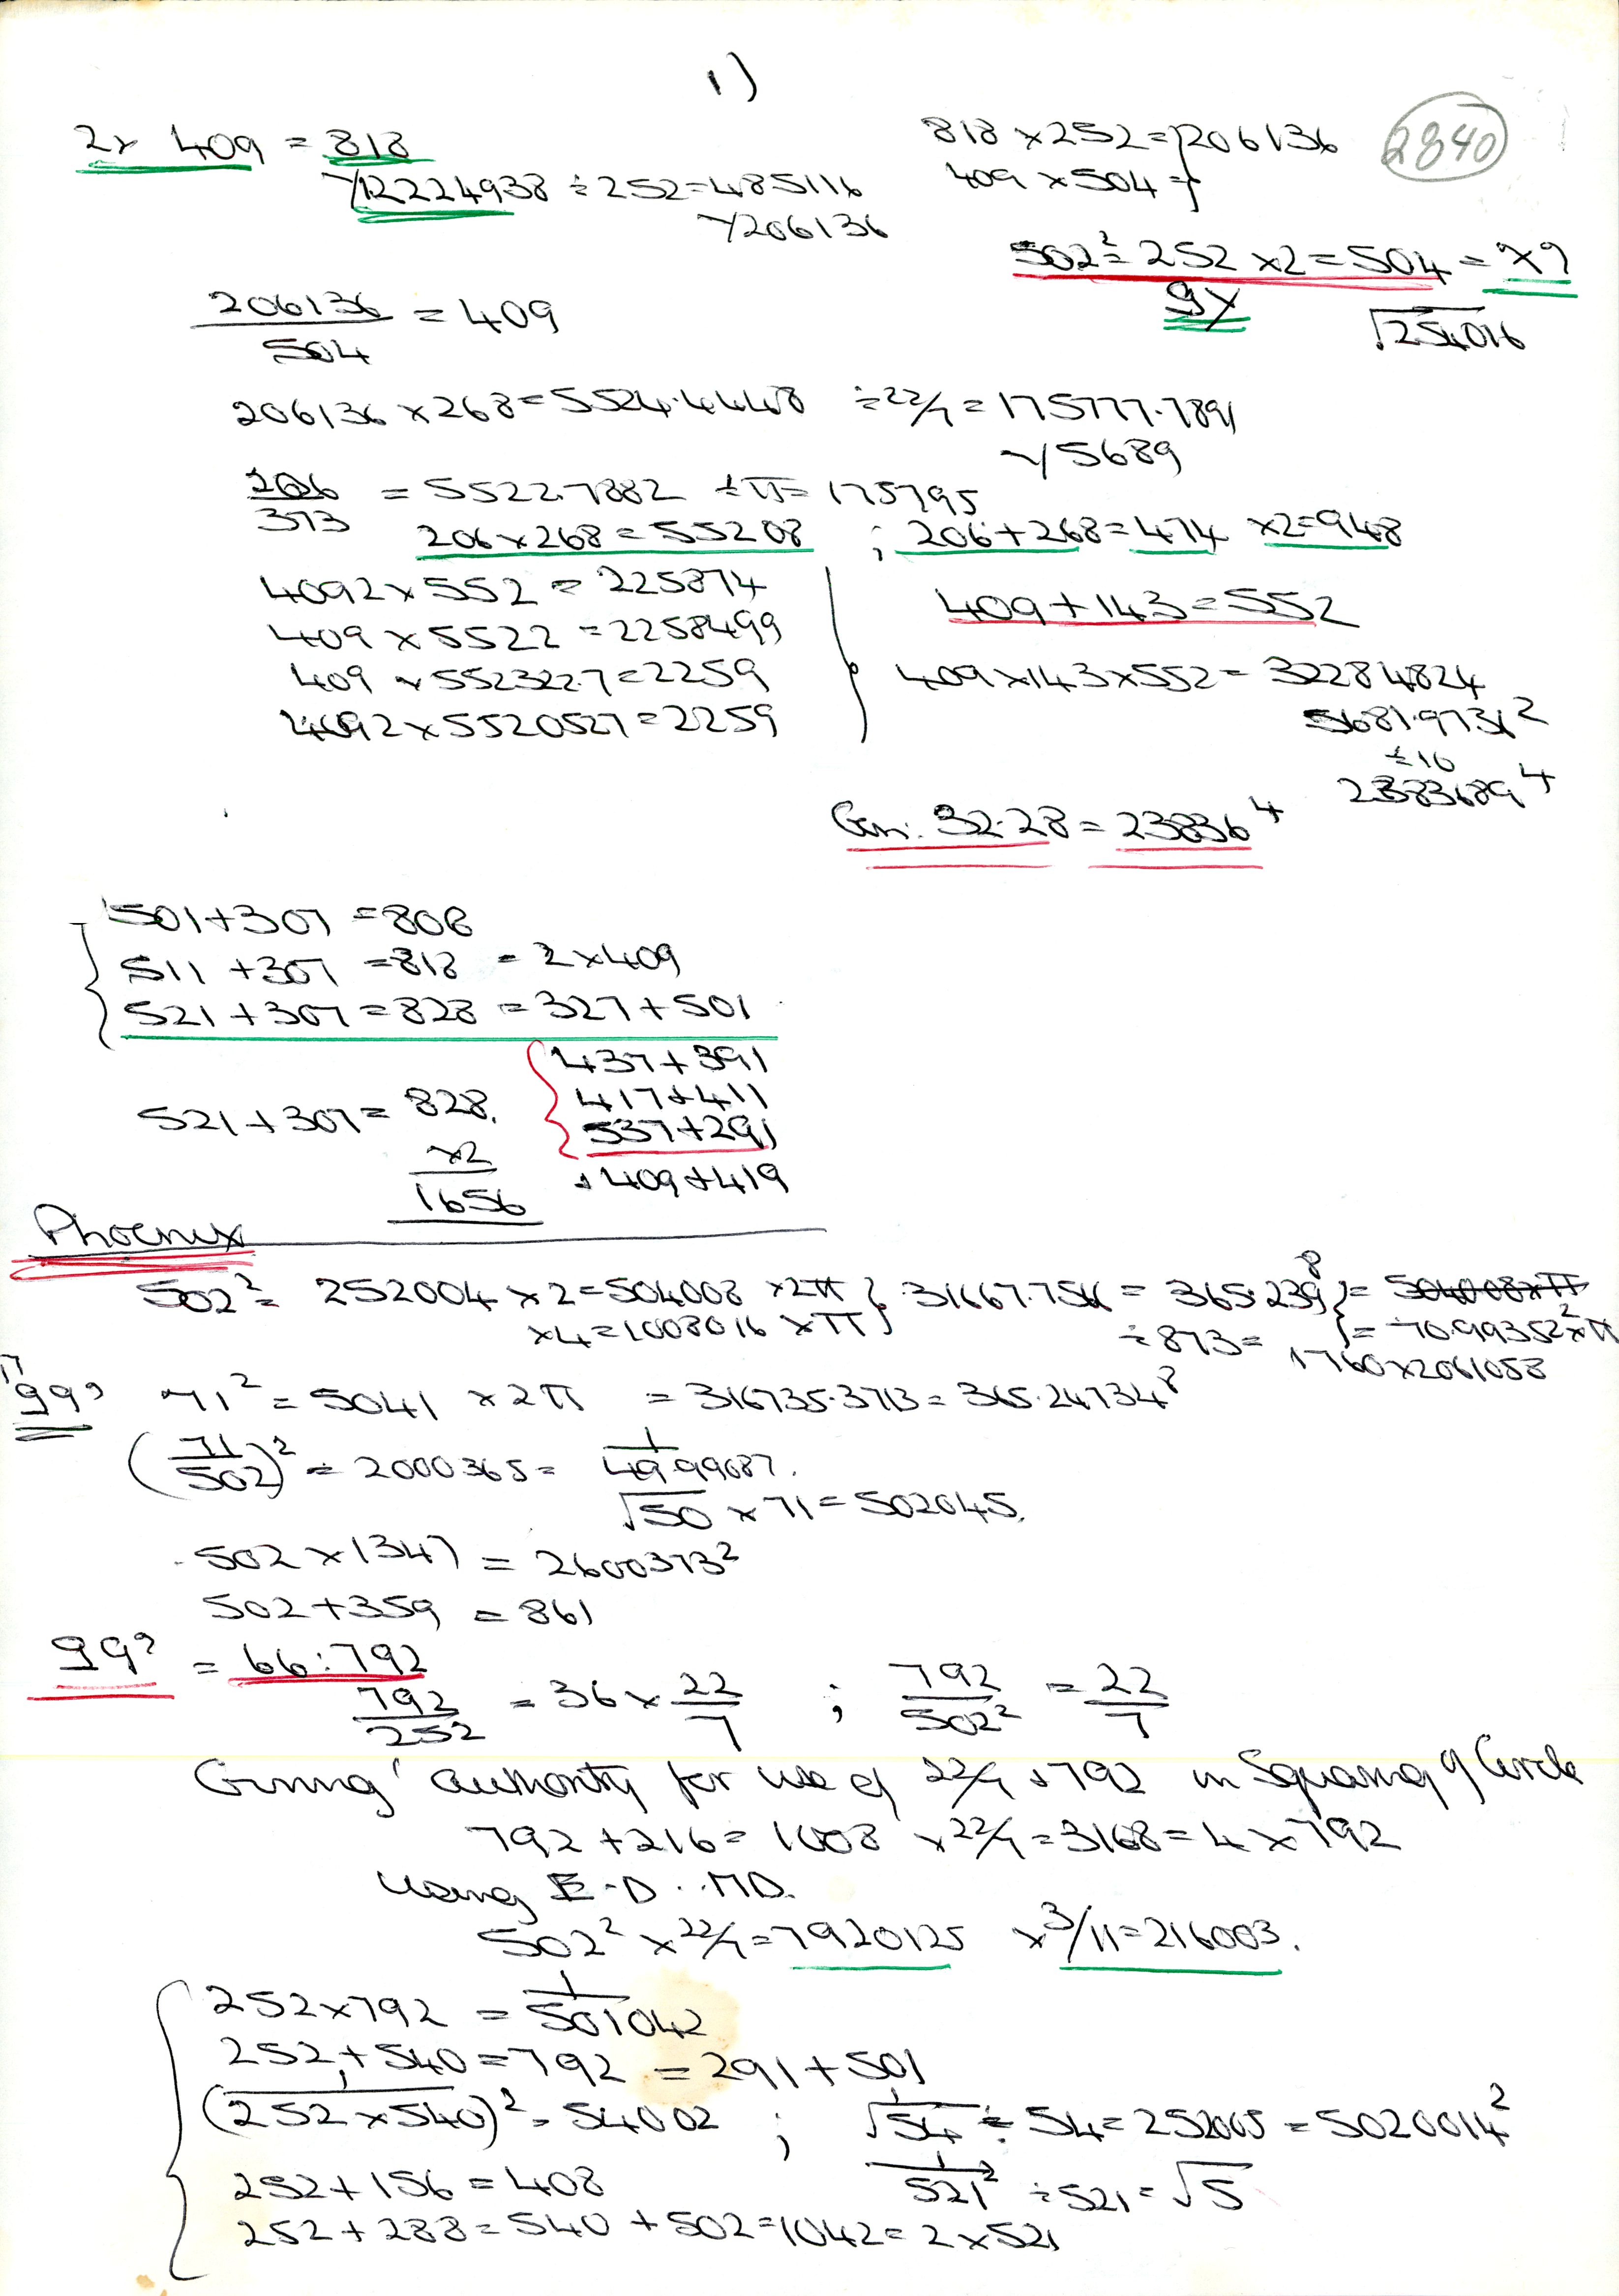 1)
2840
2x 409 = 818
818 x 252 = } 206136
√12224938 ÷ 252 = 485116
409 x 504 = }
√206136
502² = 252 x2 = 504 = x9
9x
√254016
206136 / 504 = 409
206136 x 268 = 5524.4448 ÷ 22/7 = 175777.7891
√5689
206 / 373 = 5522.7882 ÷ π = 175795
206 x 268 = 55208 ; 206 + 268 = 474 x2 = 948
4092 x 552 = 225874
409 + 143 = 552
409 x 5522 = 2258499
409 x 552322.7 = 2259
409 x 143 x 552 = 32284824
4092 x 5520527 = 2259
5681.9731²
÷10
2383689⁴
Gen: 32.28 = 23836⁴
501 + 307 = 808
511 + 307 = 818 = 2 x 409
521 + 307 = 828 = 327 + 501
437 + 391
417 + 411
521 + 307 = 828.
537 + 291
x2
409 + 419
1656
Phoenix
502² = 252004 x 2 = 504008 x 2π } 31667.756 = 365.239⁸ } = 504008 x π
x4 = 1008016 x π } ÷ 873 = } = 70.99352² x π
1760 x 2061058
99? 71² = 5041 x 2π = 316735.3713 = 365.24734⁸
(71/502)² = 2000365 = 1/49.99087.
√50 x 71 = 502045.
502 x 1347 = 2600373²
502 + 359 = 861
99? = 66:792
792/252 = 36 x 22/7 ; 792/502² = 22/7
Giving authority for use of 22/7 & 792 in Squaring of Circle
792 + 216 = 1008 x 22/7 = 3168 = 4 x 792
Using E-D. MD.
502² x 22/7 = 7920125 x 3/11 = 216003.
252 x 792 = 1/501042
252 + 540 = 792 = 291 + 501
(252 x 540)² = 54002 ; √54 ÷ 54 = 252005 = 5020014²
252 + 156 = 408
1/521² ÷ 521 = √5
252 + 288 = 540 + 502 = 1042 = 2 x 521